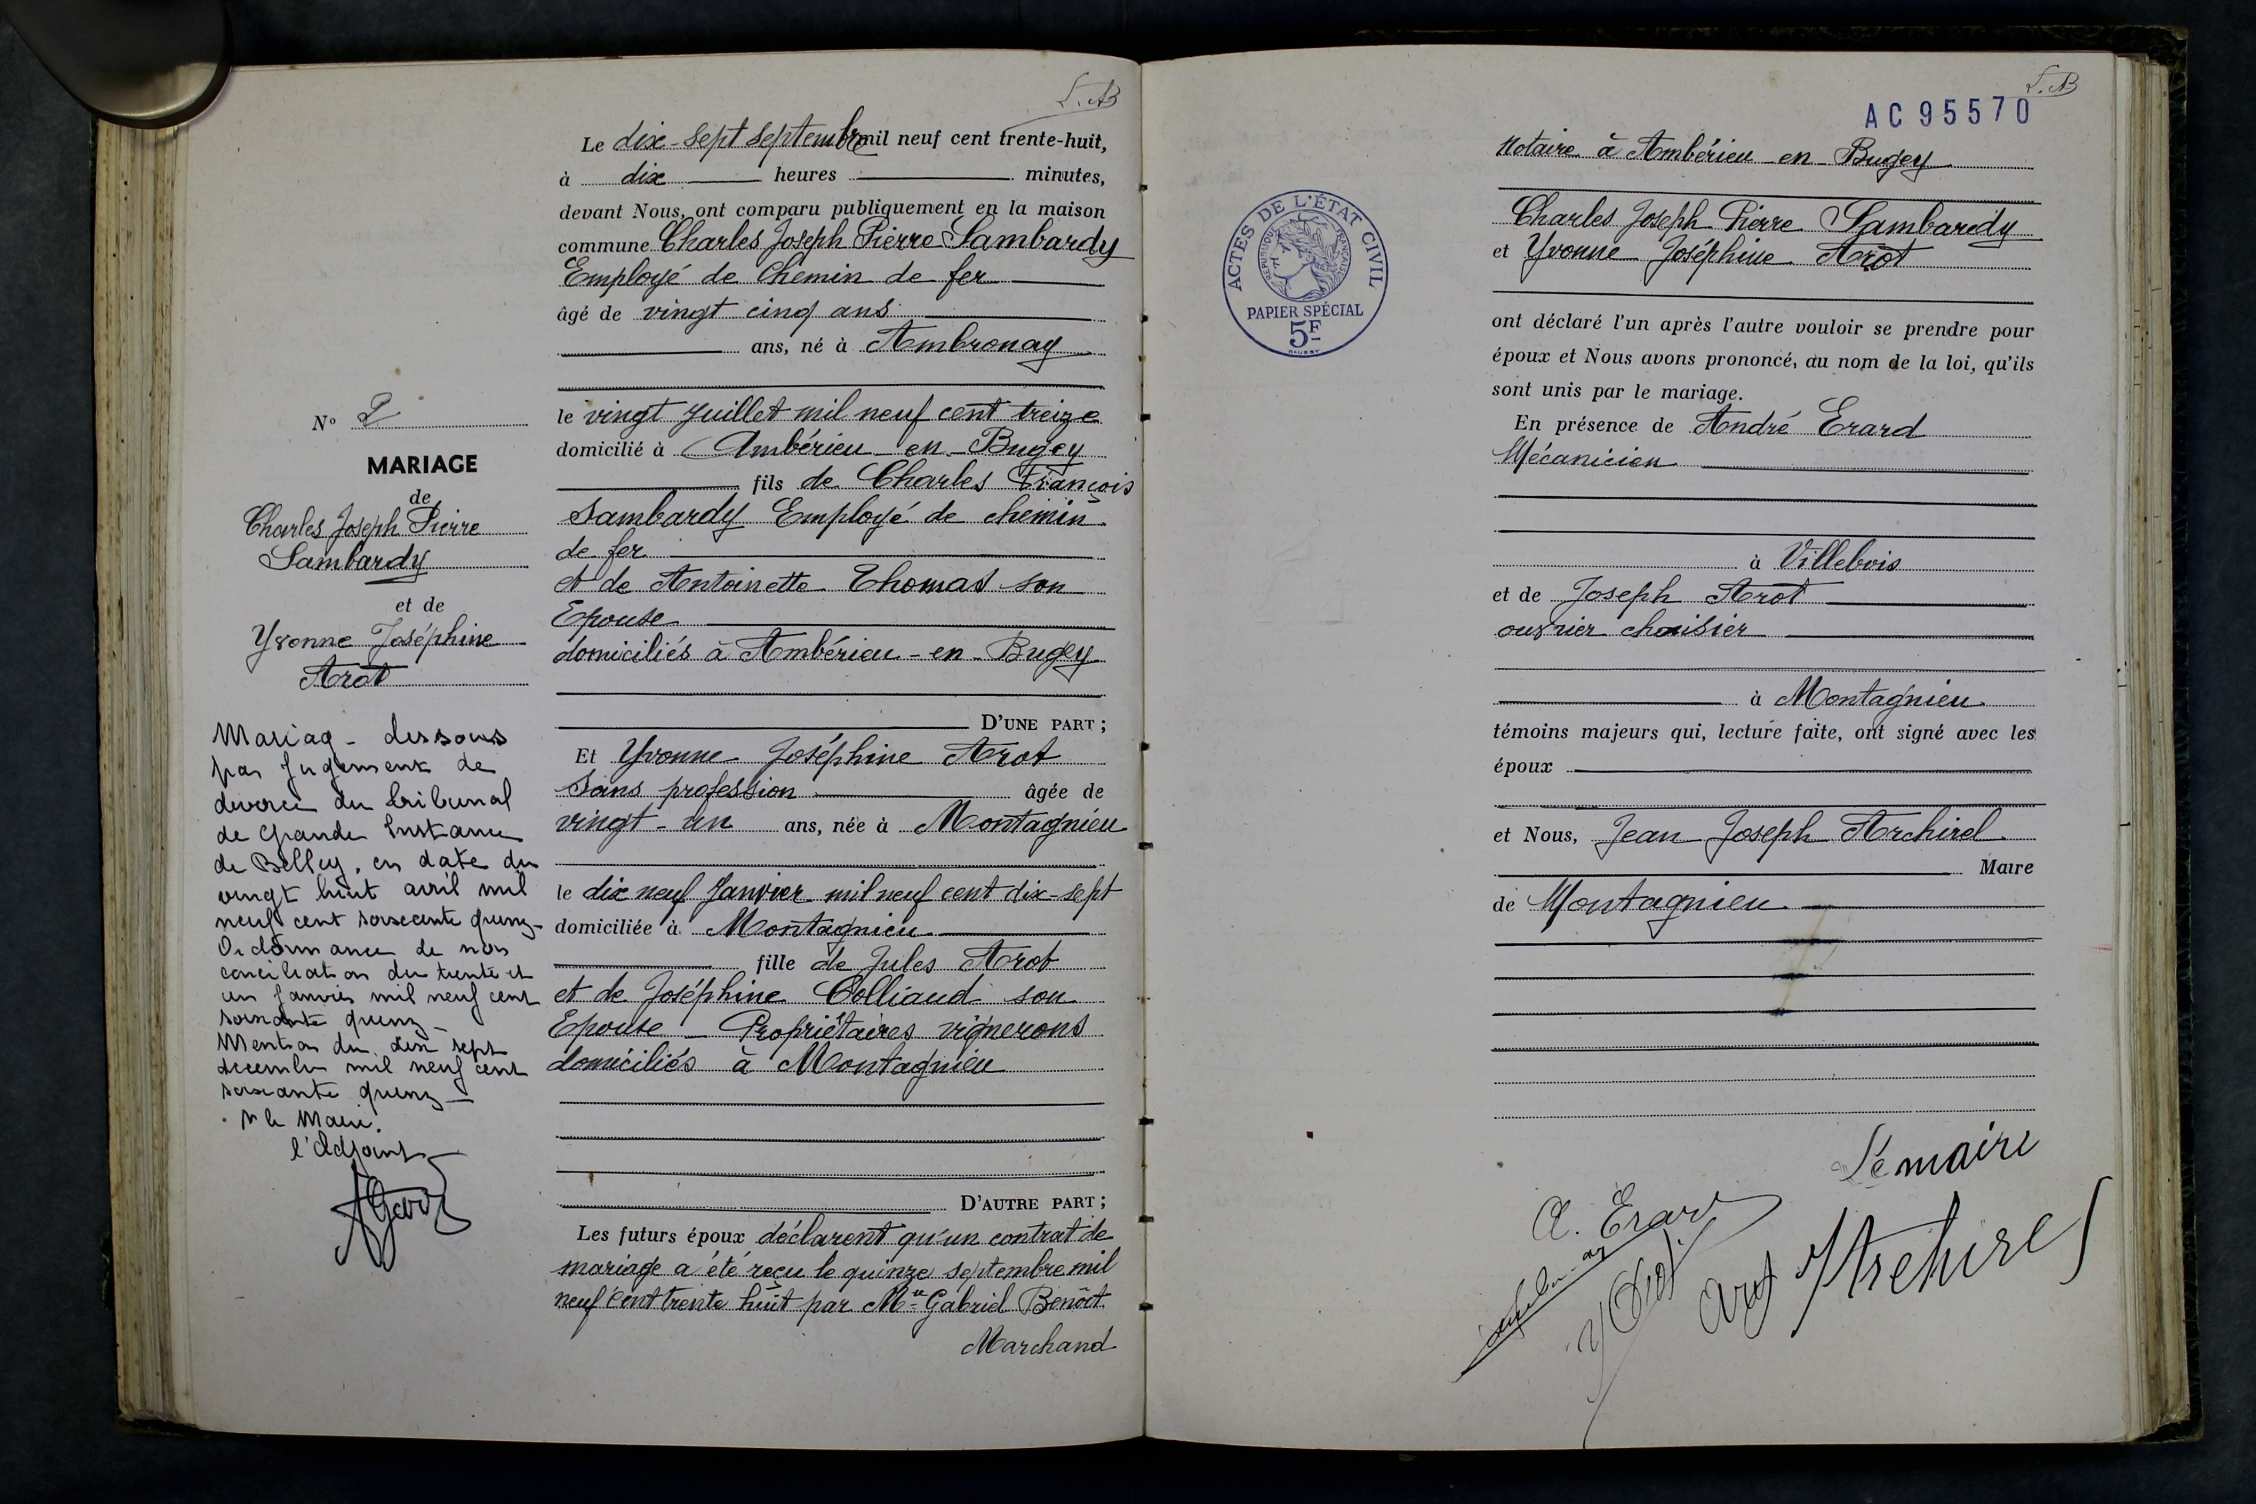 L. AB
Le dix-sept septembre mil neuf cent trente-huit,
à dix heures minutes,
devant Nous, ont comparu publiquement en la maison
commune Charles Joseph Pierre Sambardy
Employé de Chemin de fer
âgé de vingt cinq ans
ans, né à Ambronay
le vingt Juillet mil neuf cent treize
domicilié à Ambérieu-en-Bugey
fils de Charles François
Sambardy Employé de chemin
de fer
et de Antoinette Thomas son
Epouse
domiciliés à Ambérieu-en-Bugey
D'UNE PART ;
Et Yvonne Joséphine Arot
Sans profession âgée de
vingt-un ans, née à Montagnieu
le dix neuf Janvier mil neuf cent dix-sept
domiciliée à Montagnieu
fille de Jules Arot
et de Joséphine Colliaud son
Epouse - Propriétaires vignerons
domiciliés à Montagnieu
D'AUTRE PART ;
Les futurs époux déclarent qu'un contrat de
mariage a été reçu le quinze septembre mil
neuf cent trente huit par Me Gabriel Benoît
Marchand
No 2
MARIAGE
de
Charles Joseph Pierre
Sambardy
et de
Yvonne Joséphine
Arot
Mariag - dissous
par jugement de
divorce du tribunal
de Grande Instance
de Belley, en date du
vingt huit avril mil
neuf cent soixante quinz-
Ordonnance de non
conciliation du trente et
un janvier mil neuf cent
soixante quinz-
Mention du dix sept
decembre mil neuf cent
soixante quinz-
le Maire.
l'Adjoint
L. AB
AC 95570
Notaire à Ambérieu-en-Bugey
Charles Joseph Pierre Sambardy
et Yvonne Joséphine Arot
ont déclaré l'un après l'autre vouloir se prendre pour
époux et Nous avons prononcé, au nom de la loi, qu'ils
sont unis par le mariage.
En présence de André Erard
Mécanicien
à Villebois
et de Joseph Arot
ouvrier choisier
à Montagnieu
témoins majeurs qui, lecture faite, ont signé avec les
époux
et Nous, Jean Joseph Archirel
Maire
de Montagnieu
ACTES DE L'ÉTAT CIVIL
RÉPUBLIQUE FRANÇAISE
PAPIER SPÉCIAL
5F
Le maire
A. Erard
Y Arot
Arot
Archirel